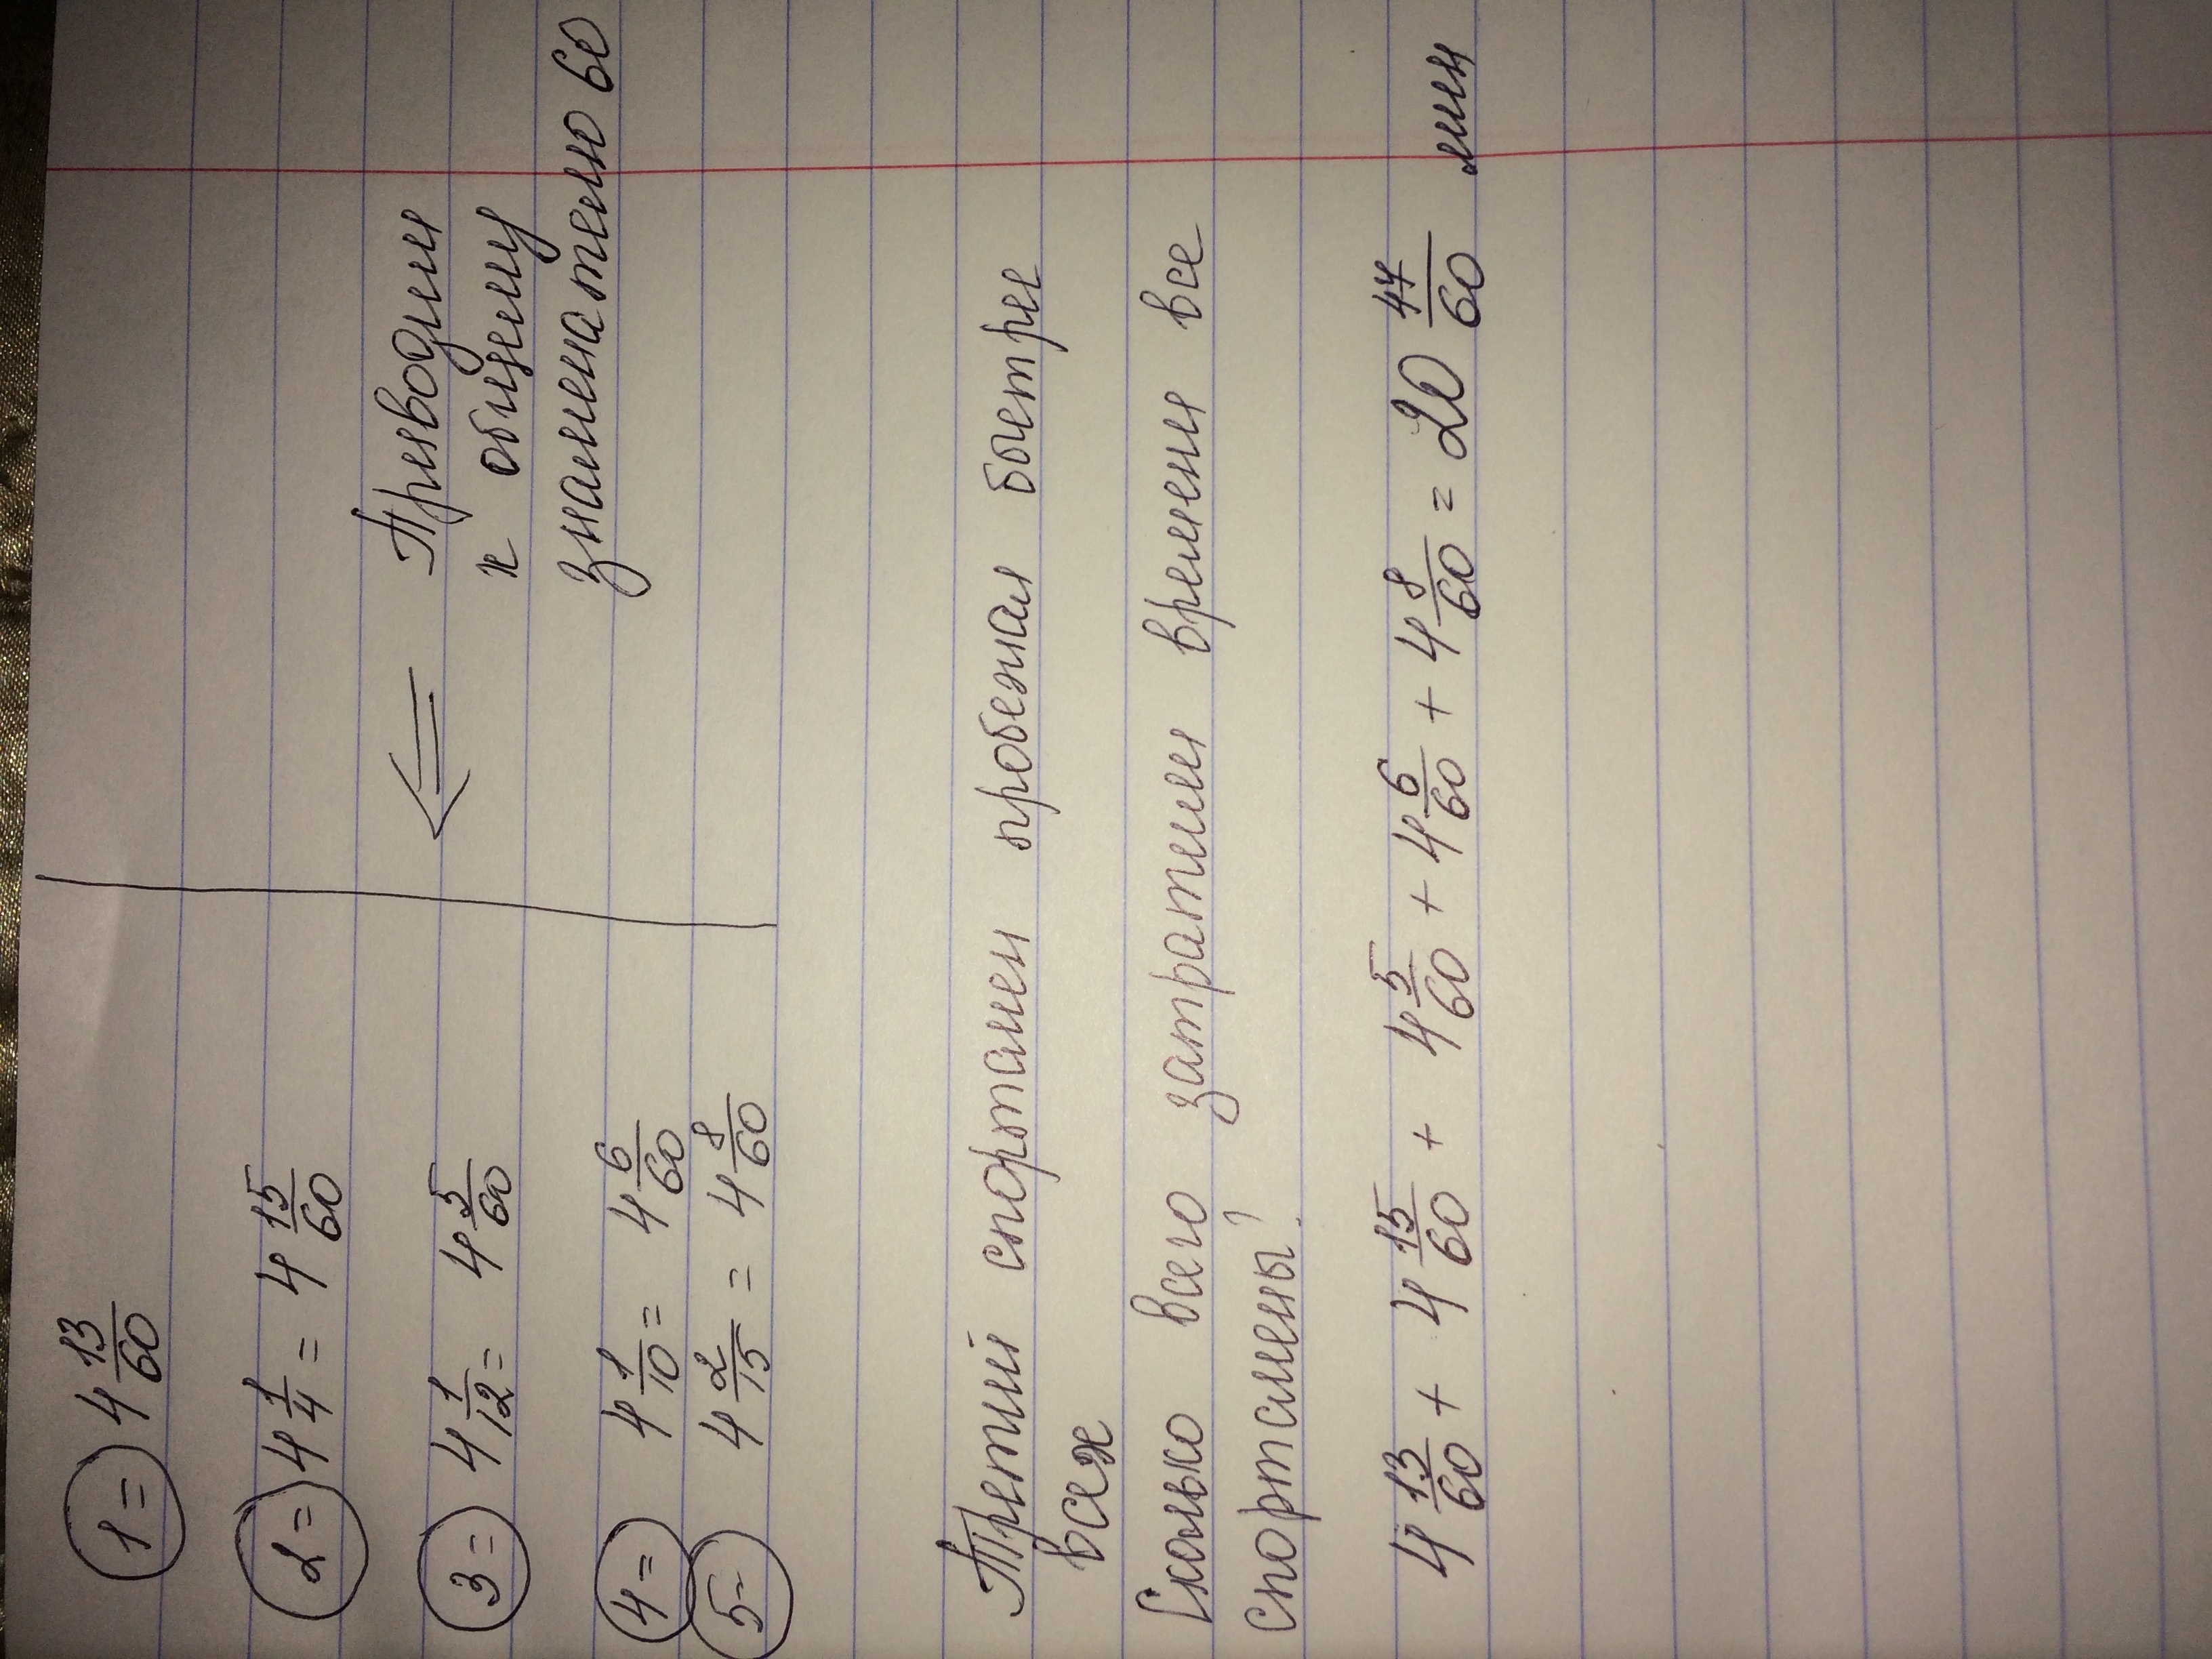 1 = 4 13/60
2 = 4 1/4 = 4 15/60
3 = 4 1/12 = 4 5/60
4 = 4 1/10 = 4 6/60
5 = 4 2/15 = 4 8/60
⇐ Приводим
к общему
знаменателю 60
Третий спортамен пробежал быстрее
всех
Сколько всего затратили времени все
спортсмены?
4 13/60 + 4 15/60 + 4 5/60 + 4 6/60 + 4 8/60 = 20 47/60 мин